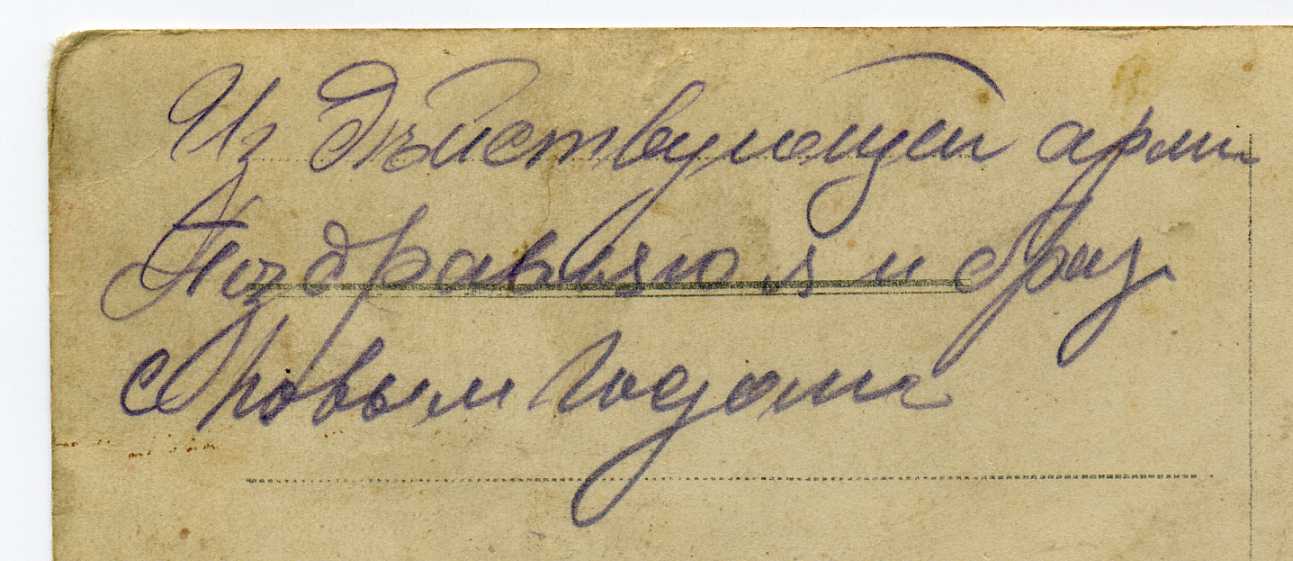 Из Дѣйствующей арми
Поздравляю я и сраз
с Новым Годом